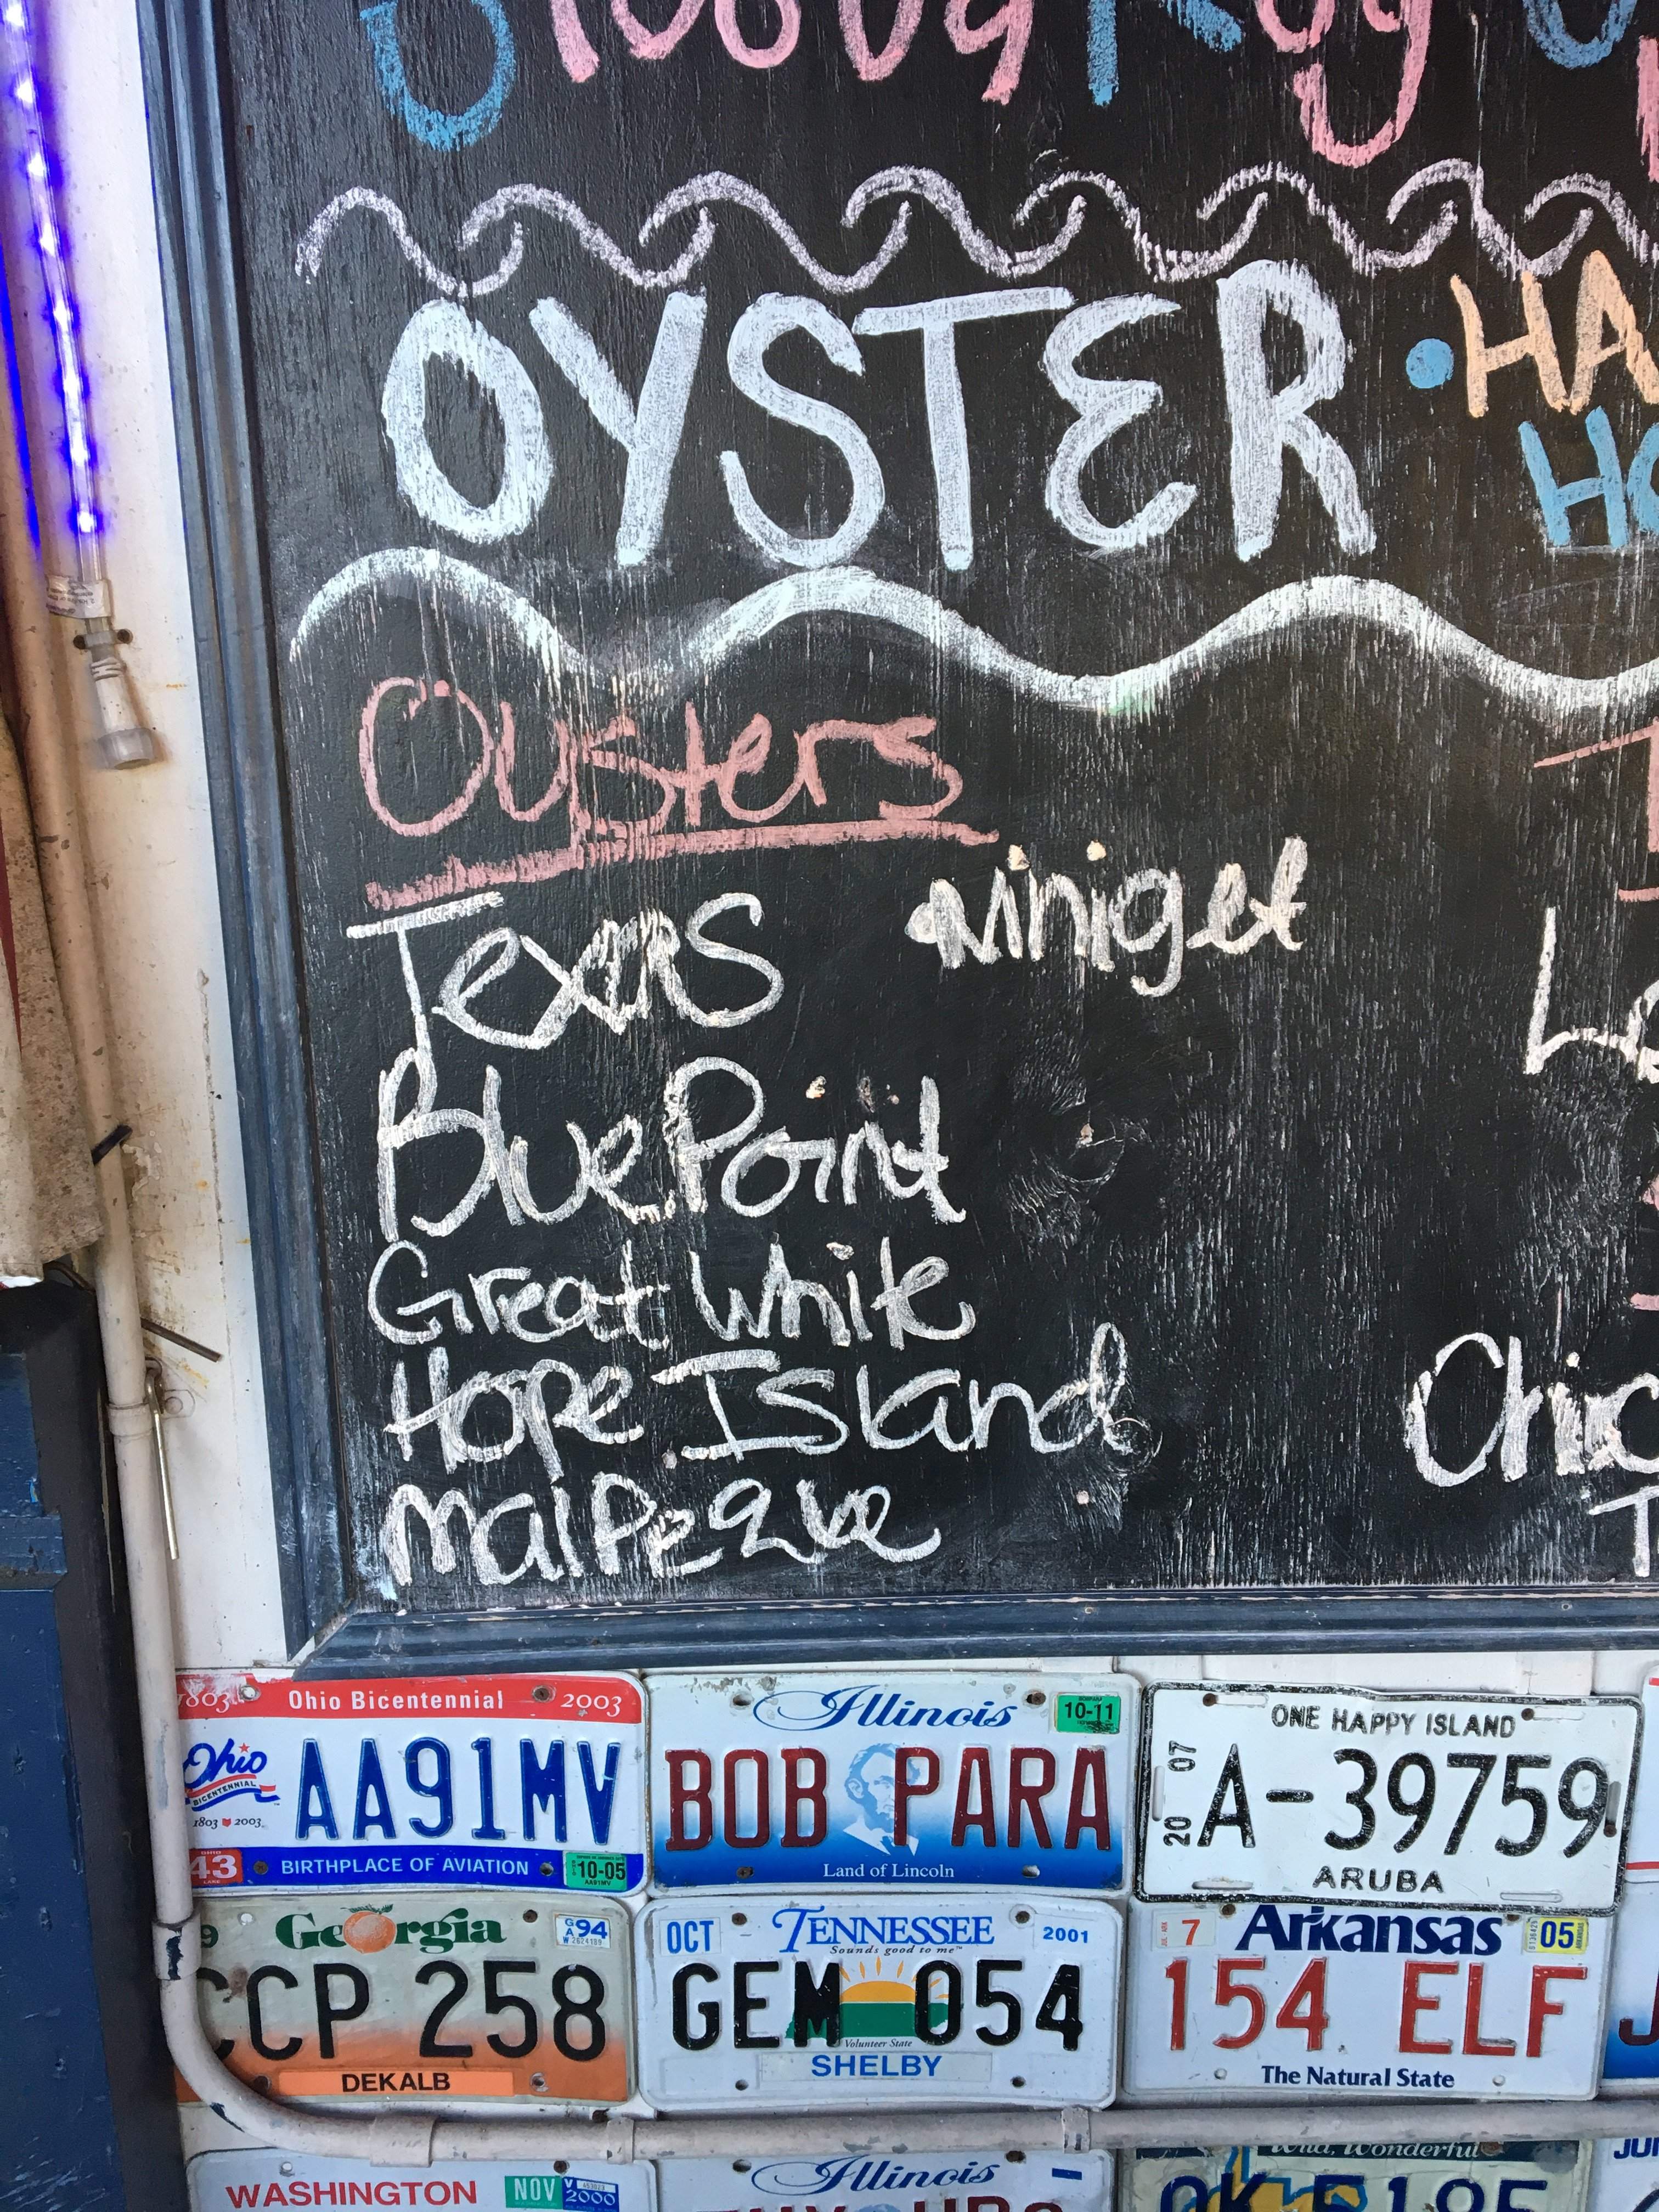 OYSTER
• HA
HO
Oysters
Texas
Niniget
BluePoint
Great White
Hope Island
MalPeque
Chinc
1803 Ohio Bicentennial 2003
Ohio
BICENTENNIAL
1803 2003
AA91MV
43 BIRTHPLACE OF AVIATION 10-05
AA91MV
Illinois 10-11
BOB PARA
Land of Lincoln
ONE HAPPY ISLAND
20 07
A-39759
ARUBA
9 Georgia GA 94
CCP 258
DEKALB
OCT TENNESSEE 2001
Sounds good to me™
GEM 054
Volunteer State
SHELBY
7 Arkansas 05
154 ELF
The Natural State
WASHINGTON NOV 2000
Illinois
Wild, Wonderful
JU